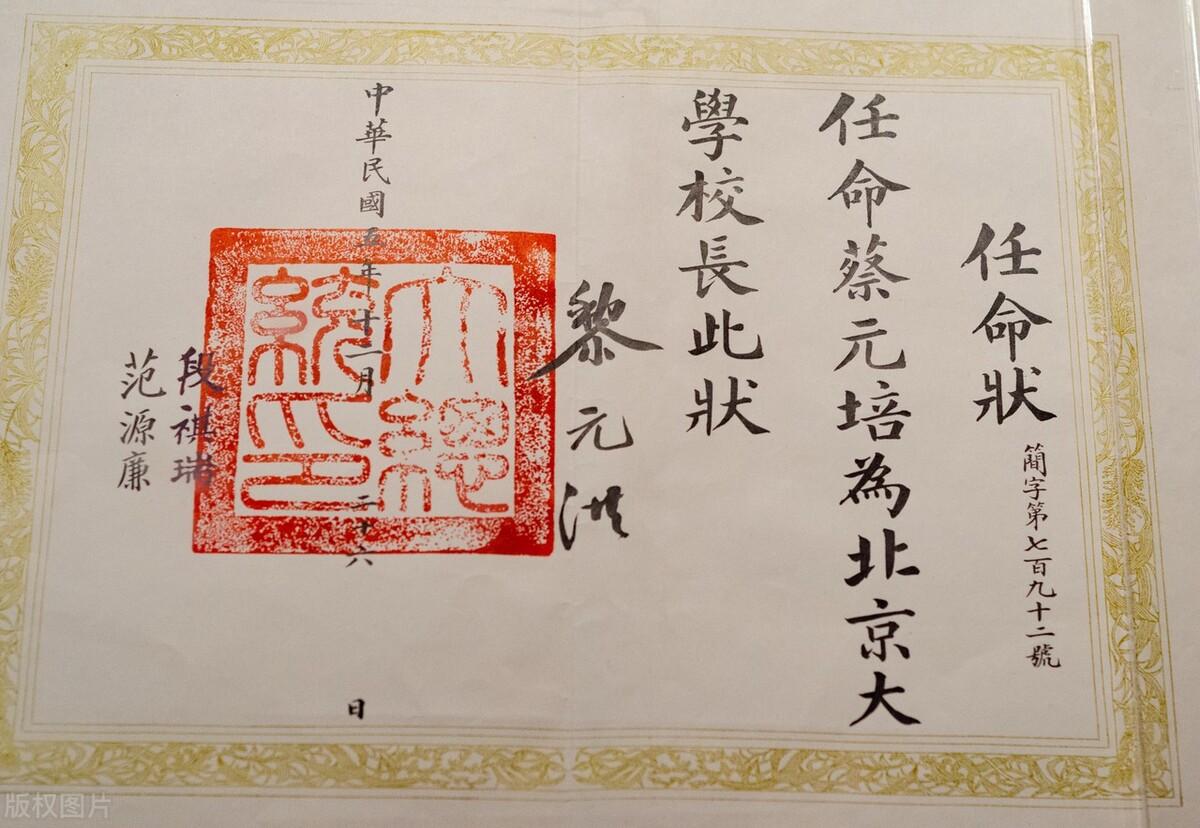 任命狀
簡字第七百九十二號
任命蔡元培為北京大
學校長此狀
黎元洪
大總統印
中華民國五年十二月二十六日
段祺瑞
范源廉
版权图片